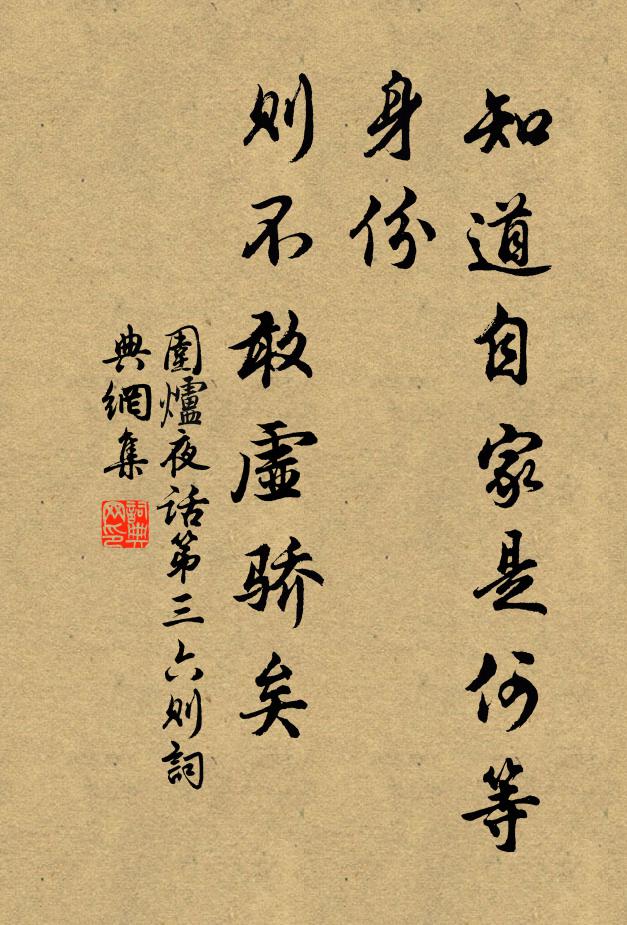 知道自家是何等
身份
则不敢虚骄矣
圍爐夜话第三六则詞
典網集
詞典
网印